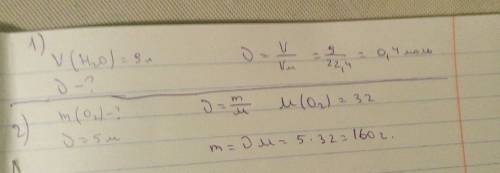 1)
V(H₂O) = 9 л
υ = V/Vм = 9/22,4 = 0,4 моль
υ - ?
2)
m(O₂) - ?
υ = m/M M(O₂) = 32
υ = 5 м
m = υ M = 5 · 32 = 160 г.